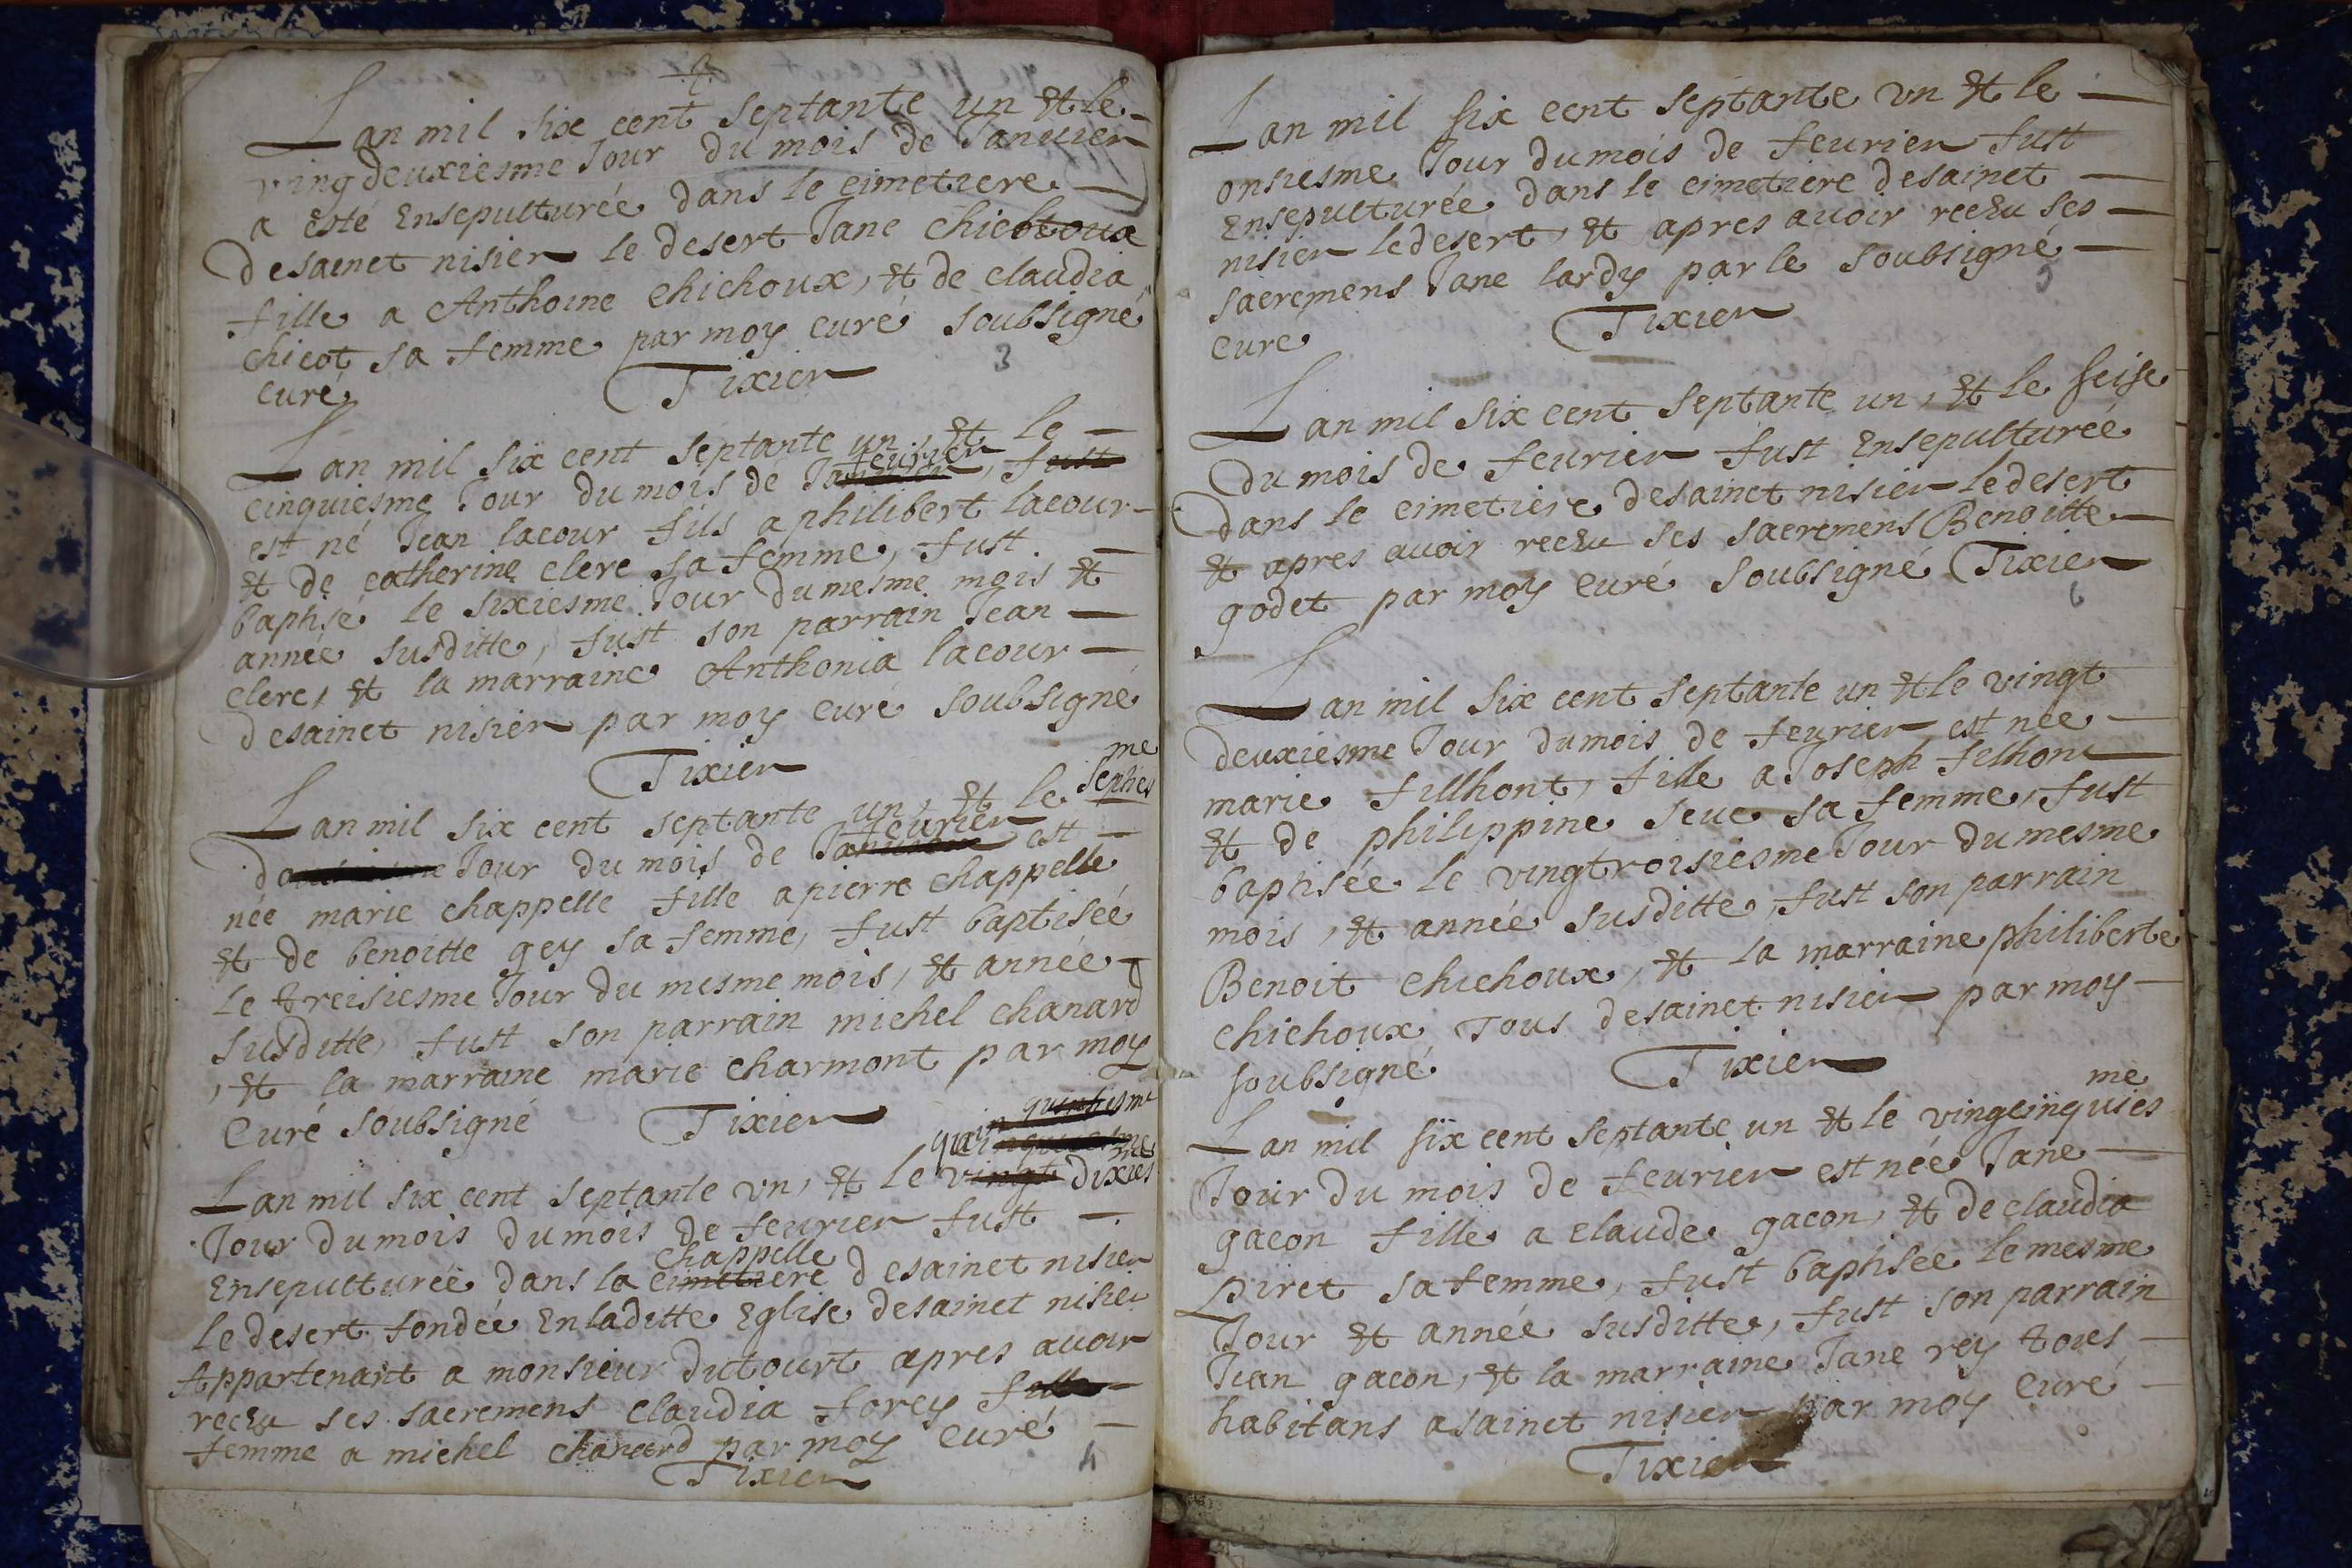 Lan mil six cent septante un et le
ving deuxiesme Jour du mois de Januier
a esté Ensepulturée dans le cimetiere
de sainct nisier le desert Jane chichoux
fille a Anthoine chichoux, et de claudia
chicot sa femme par moy curé soubsigné
curé Tixier
3
Lan mil six cent septante un, et le
feurier
cinquiesme Jour du mois de Januier, fust
est né Jean lacour fils a philibert lacour
et de catherine clerc sa femme, fust
baptisé le sixiesme Jour du mesme mois et
année susditte, fust son parrain Jean
clerc, et la marraine Anthonia lacour
de sainct nisier par moy curé soubsigné
Tixier
me
Lan mil six cent septante un, et le septies
feurier
Jour du mois de Januier est
née marie chappelle fille a pierre chappelle
et de benoitte gey sa femme, fust baptisée
le treisiesme Jour du mesme mois, et année
susditte, fust son parrain michel chanard
, et la marraine marie charmont par moy
Curé soubsigné Tixier
me
Lan mil six cent septante vn, et le vingt dixies
Jour du mois du mois de feurier fust
chappelle
Ensepulturée dans la cimetiere de sainct nisier
le desert fondée En laditte Eglise de sainct nisier
Appartenant a monsieur dutourt apres auoir
receu ses sacremens claudia forey fille
femme a michel chanard par moy curé
Tixier
4
Lan mil six cent septante vn et le
onsiesme Jour du mois de feurier fust
Ensepulturée dans le cimetiere de sainct
nisier le desert, et apres auoir receu ses
sacremens Jane lardy par le soubsigné
curé Tixier
5
Lan mil six cent septante un, et le seise
du mois de feurier fust Ensepulturée
dans le cimetiere de sainct nisier le desert
et apres auoir receu ses sacremens Benoitte
godet par moy curé soubsigné Tixier
6
Lan mil six cent septante un et le vingt
deuxiesme Jour du mois de feurier est née
marie fillhont, fille a Joseph filhont
et de philippine seue sa femme, fust
baptisée le vingtroisiesme Jour du mesme
mois, et année susditte, fust son parrain
Benoit chichoux, et la marraine philiberte
chichoux Tous de sainct nisier par moy
soubsigné Tixier
me
Lan mil six cent septante un et le vingcinquies
Jour du mois de feurier est née Jane
gacon fille a claude gacon, et de claudia
piret sa femme, fust baptisée le mesme
Jour et année susditte, fust son parrain
Jean gacon, et la marraine Jane rey tous
habitans a sainct nisier par moy curé
Tixier